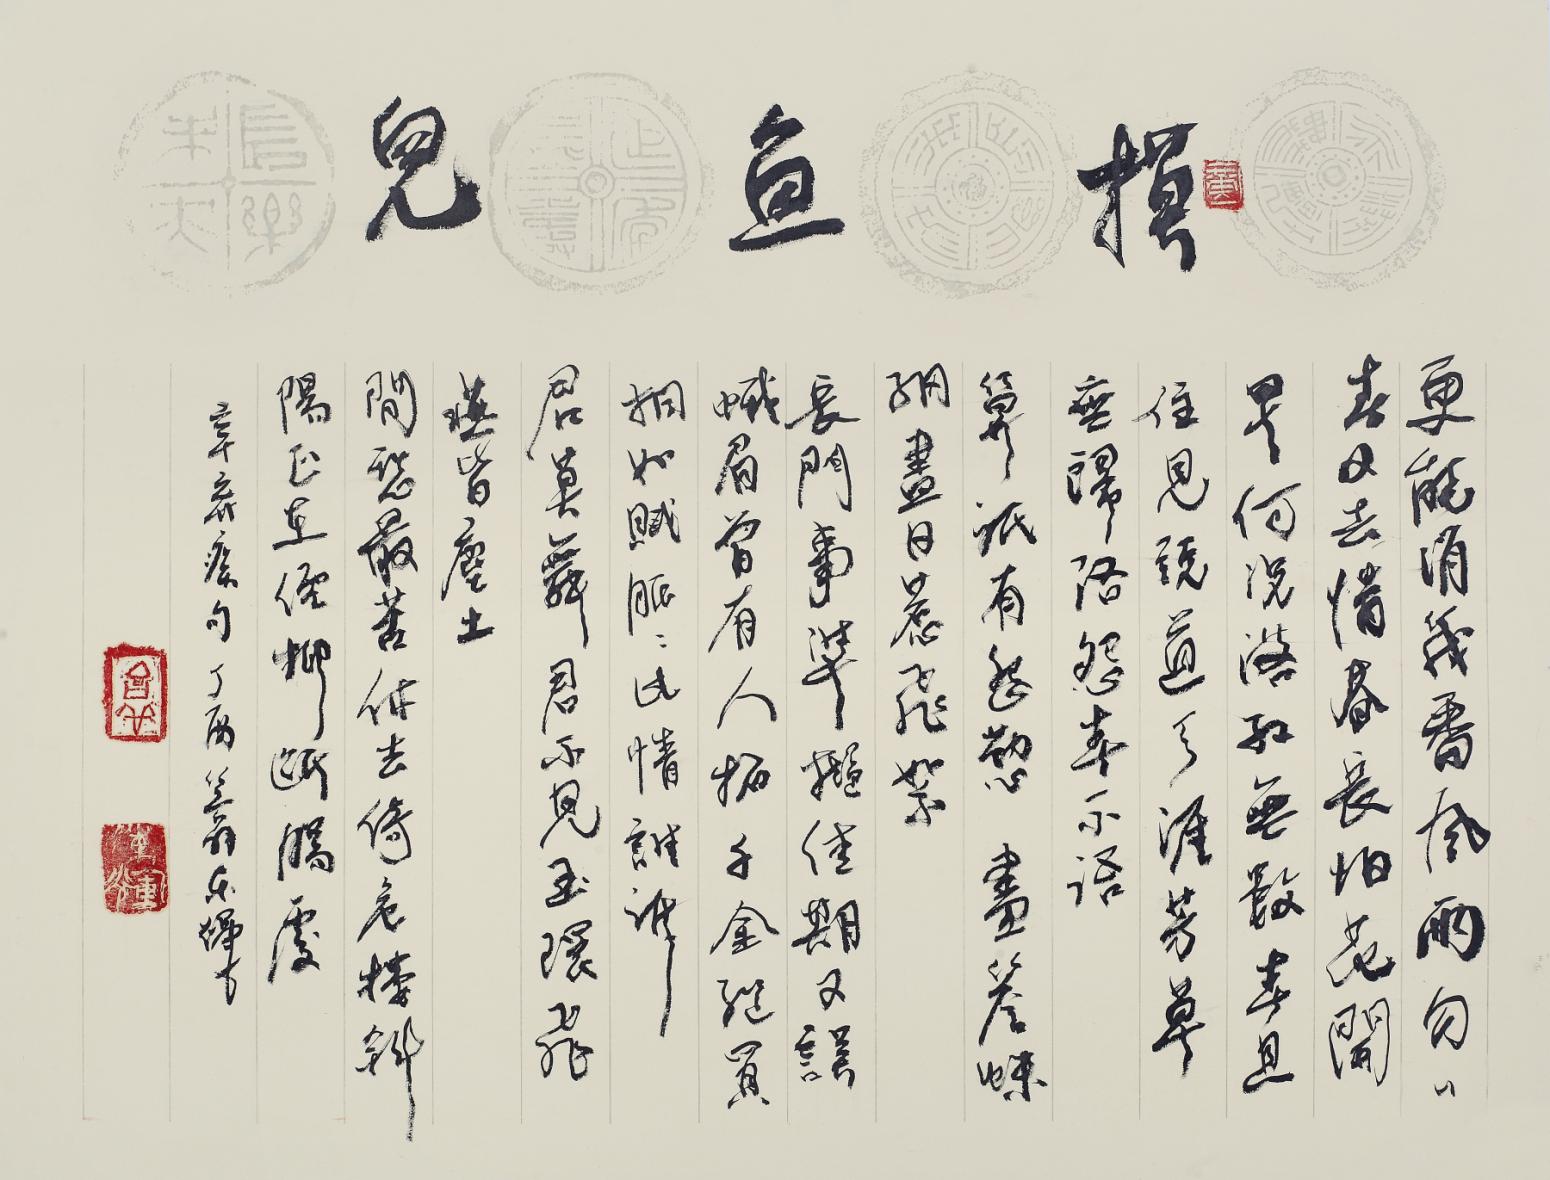 摸鱼兒
長樂未央
更能消幾番風雨匆〻
春又去惜春長怕花開
早何況落紅無數春且
住見說道天涯芳草
無歸路怨春不語
算祇有殷勤畫簷蛛
網盡日惹飛絮
長門事準擬佳期又誤
蛾眉曾有人妬千金縱買
相如賦脈〻此情誰訴
君莫舞君不見玉環飛
燕皆塵土
閒愁最苦休去倚危樓斜
陽正在煙柳斷腸處
辛棄疾句丁酉